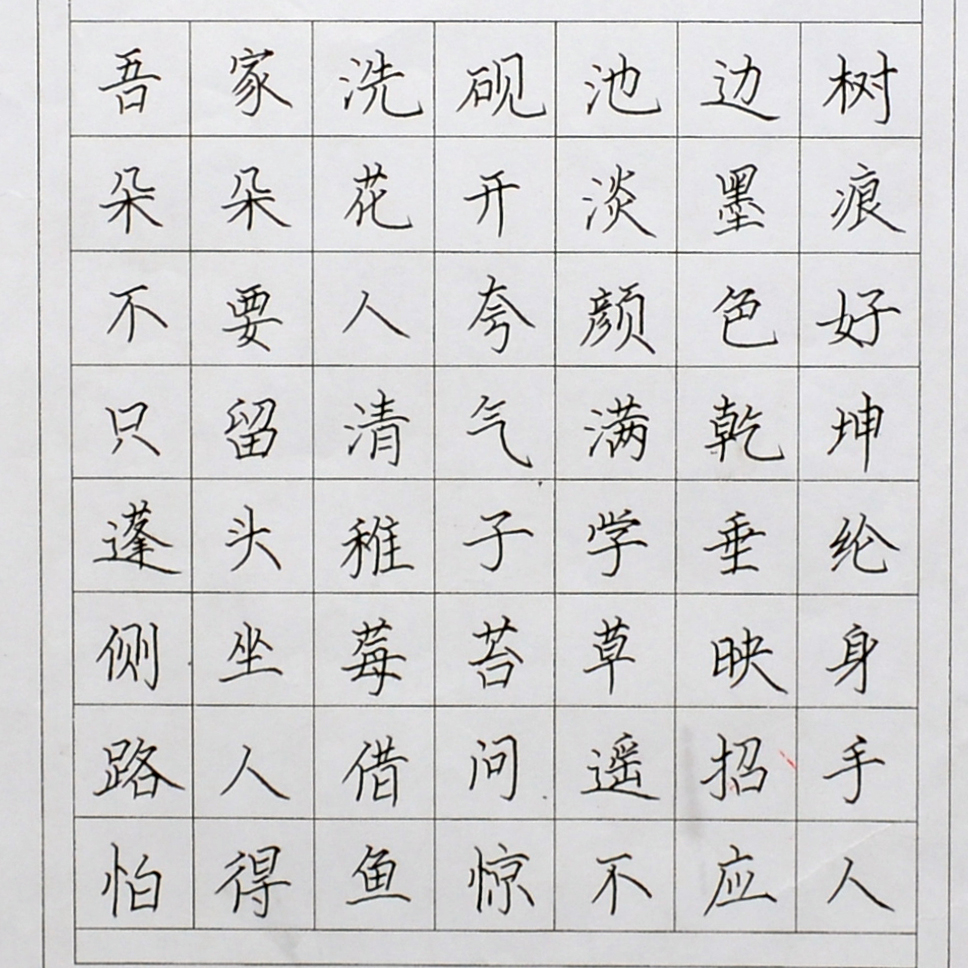 吾家洗砚池边树
朵朵花开淡墨痕
不要人夸颜色好
只留清气满乾坤
蓬头稚子学垂纶
侧坐莓苔草映身
路人借问遥招手
怕得鱼惊不应人